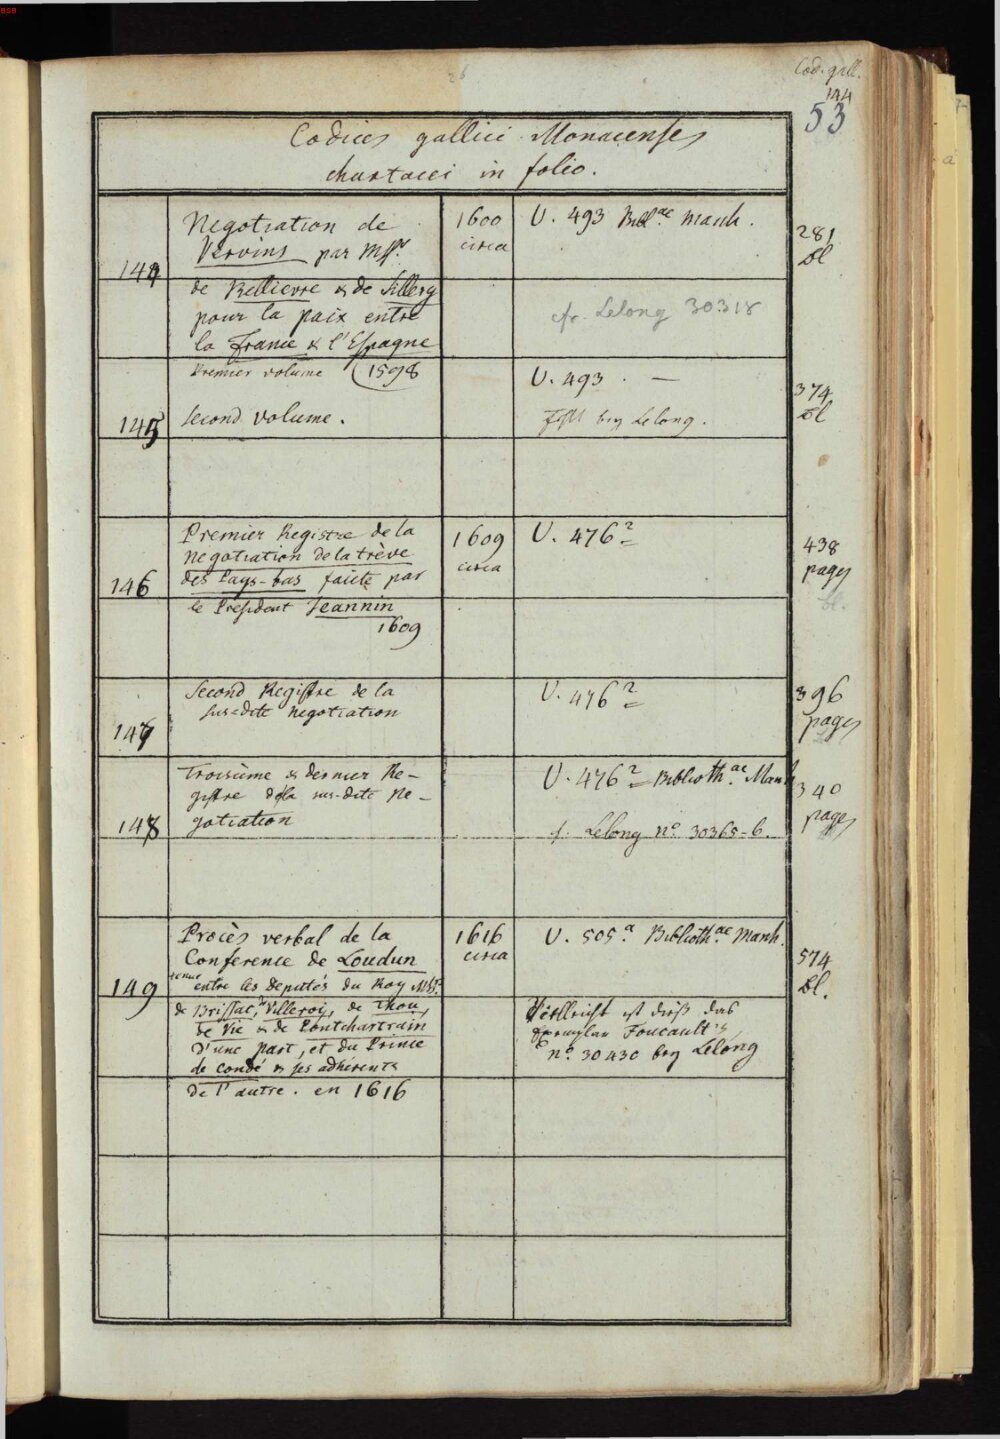 BSB
26
Cod. gall.
144
53
Codices gallici Monacenses
chartacei in folio.
Negotiation de
Vervins par Mssrs.
144
1600
circa
U. 493 Biblae Manh.
281
Bl
de Bellievre & de Sillery
pour la paix entre
la france & l'Espagne
cfr. Lelong 30318
Premier volume (1598
145
second volume.
U. 493. —
Fehlt bey Lelong.
374
Bl
146
Premier Registre de la
negotiation de la trève
des Pays-bas faicte par
le President Jeannin
1609
1609
circa
U. 476?
438
pages
bl.
147
Second Registre de la
sus-dite negotiation
U. 476?
396
pages
148
Troisième & dernier Re-
gistre dela sus-dite Ne-
gotiation
U. 476? Biblioth.ae Manh
cf. Lelong no. 30365-6.
340
pages
149
Procès verbal de la
Conference de Loudun
tenue entre les deputés du Roy Mssrs.
de Brissac, Villeroy, de Thou,
de Vic & de Pontchartrain
d'une part, et du Prince
de Condé & ses adhérents
de l'autre. en 1616
1616
circa
U. 505.a Biblioth.ae Manh.
Vielleicht ist dieß das
Exemplar Foucault's
no. 30430 bey Lelong
574
Bl.